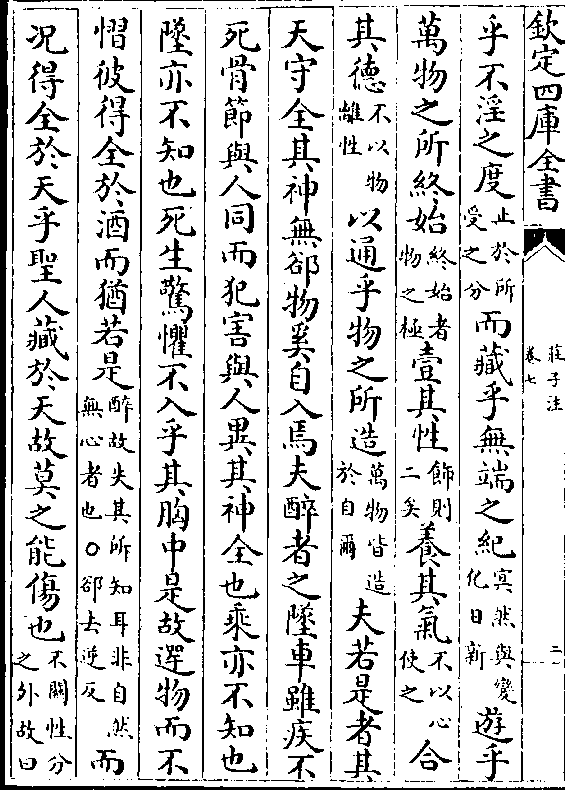 欽定四庫全書
莊子注
卷七
二
乎不淫之度止於所受之分而藏乎無端之紀㝠然與變化日新遊乎
萬物之所終始終始者物之極壹其性飾則二矣養其氣不以心使之合
其德不以物離性以通乎物之所造萬物皆造於自爾夫若是者其
天守全其神無郤物奚自入焉夫醉者之墜車雖疾不
死骨節與人同而犯害與人異其神全也乘亦不知也
墜亦不知也死生驚懼不入乎其胸中是故遻物而不
慴彼得全於酒而猶若是醉故失其所知耳非自然無心者也○郤去逆反而
況得全於天乎聖人藏於天故莫之能傷也不闚性分之外故曰